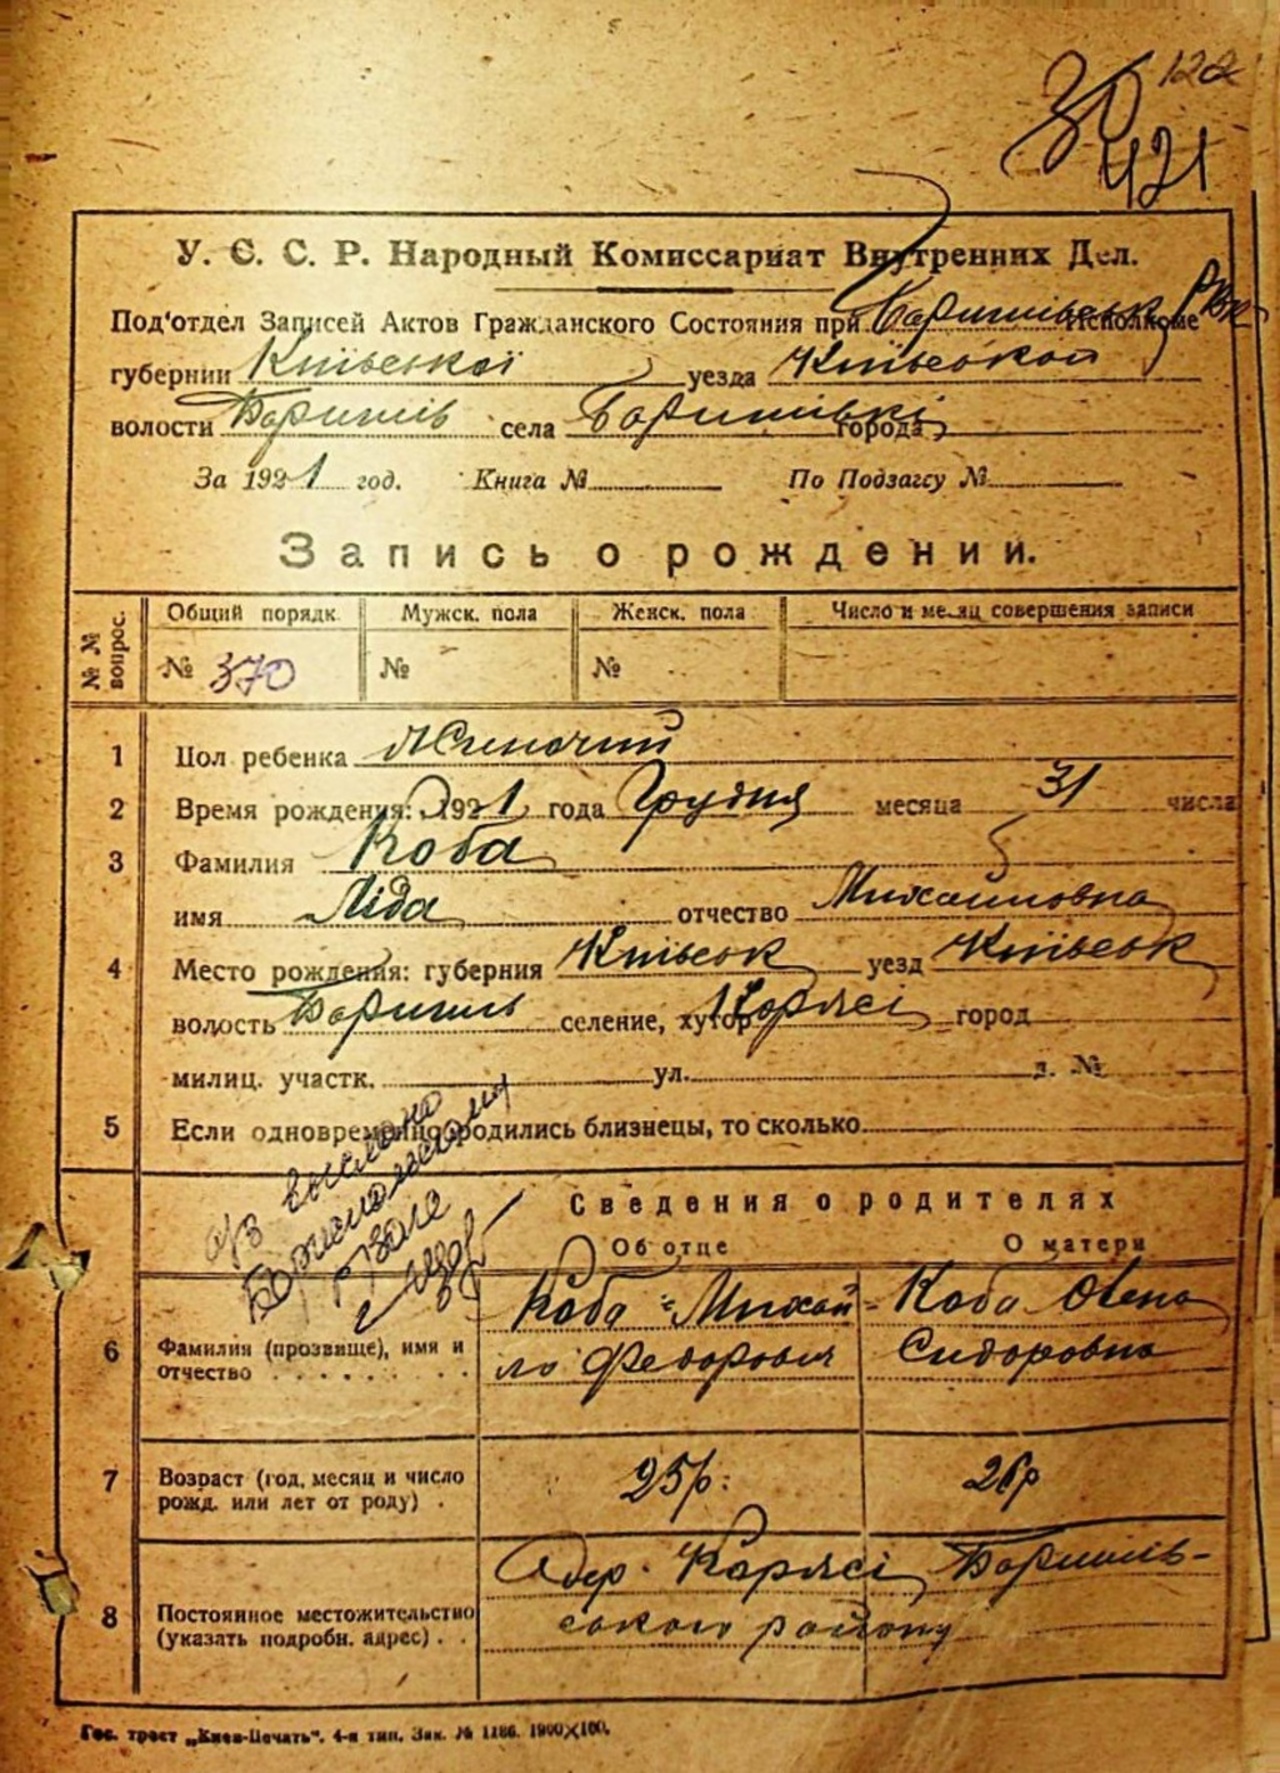 30 122
421
У. С. С. Р. Народный Комиссариат Внутренних Дел.
Под'отдел Записей Актов Гражданского Состояния при Баришівськ Исполкоме РВК
губернии Київської уезда Київської
волости Баришів села Баришівкі города
За 1921 год. Книга № По Подзагсу №
Запись о рождении.
№ № вопрос. Общий порядк. Мужск. пола Женск. пола Число и месяц совершения записи
№ 370 № №
1 Пол ребенка Жиночий
2 Время рождения: 1921 года Грудня месяца 31 числа
3 Фамилия Коба
имя Ліда отчество Михайловна
4 Место рождения: губерния Київськ уезд Київськ
волость Баришів селение, хутор город
милиц. участк. ул. д. №
5 Если одновременно родились близнецы, то сколько
Сведения о родителях
Об отце О матери
6 Фамилия (прозвище), имя и отчество Коба Михай- Коба
ло Федорович Сидоровна
7 Возраст (год, месяц и число рожд. или лет от роду) 25 р. 26 р
8 Постоянное местожительство (указать подробн. адрес) Баришів-
ського району
Гос. трест „Киев-Печать“. 4-я тип. Зак. № 1186. 1900×100.